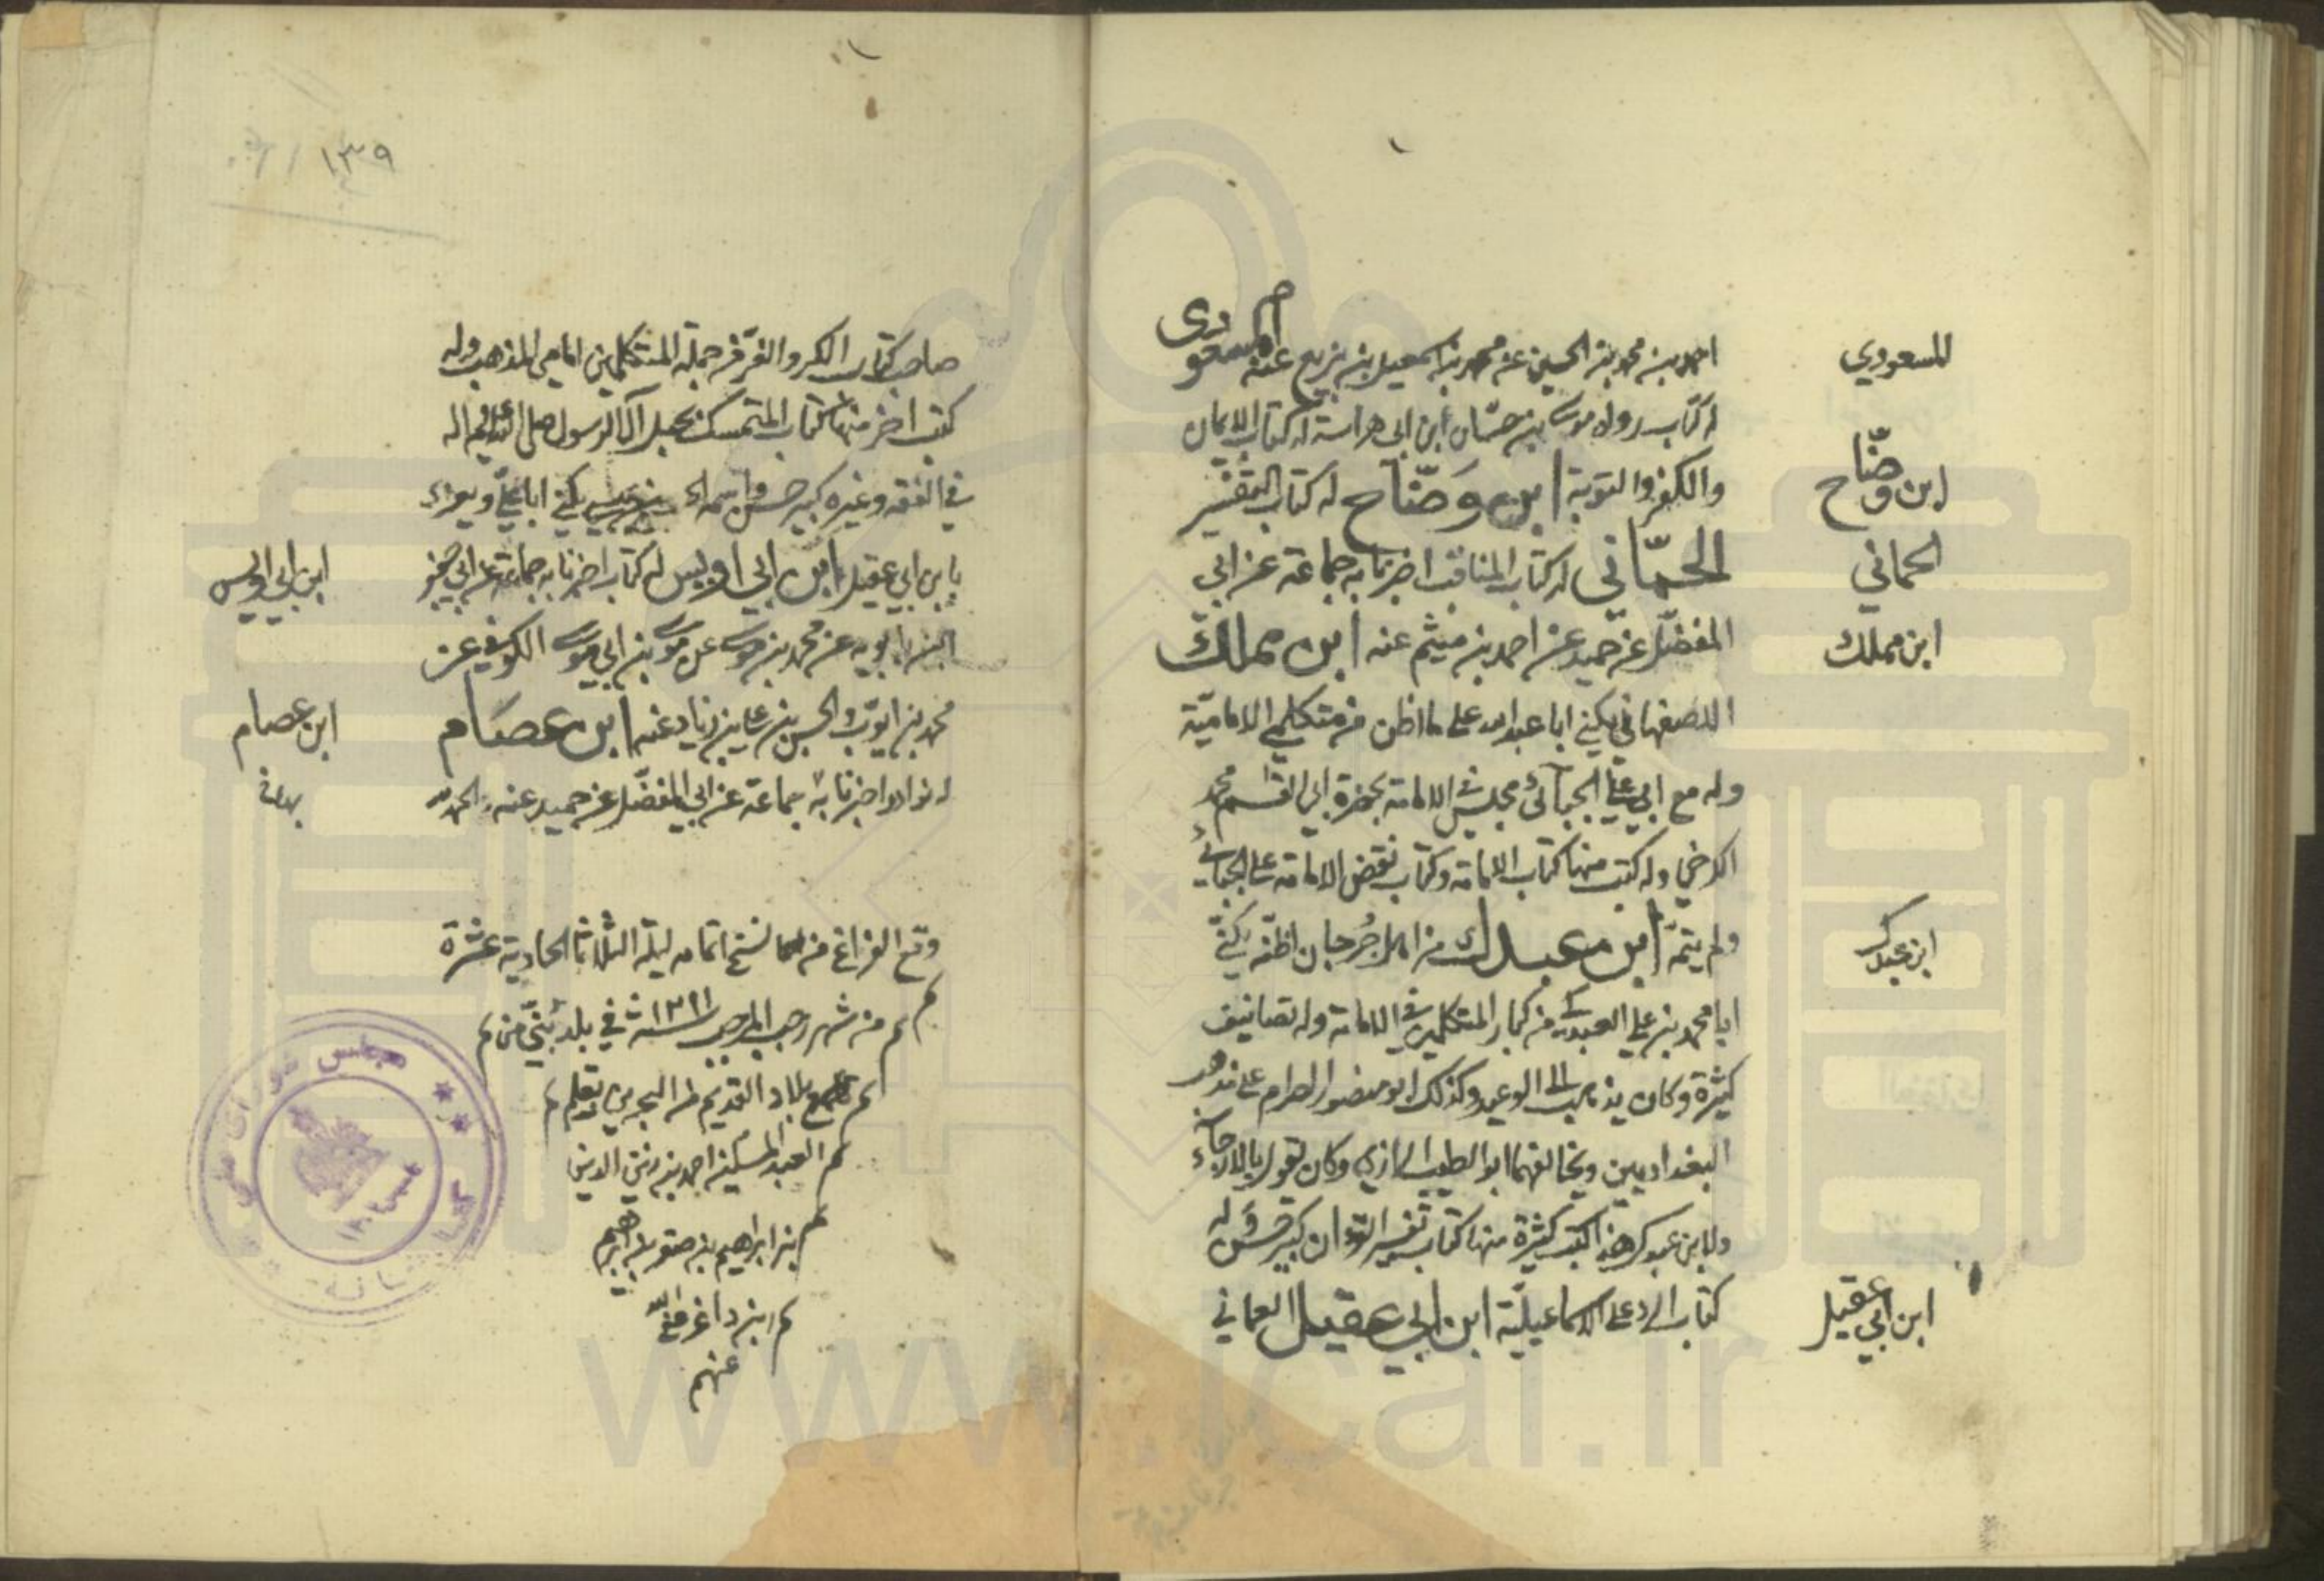 المسعودي
احمد بن محمد بن الحسين عن محمد بن اسمعيل بن بزيع عنه المسعودي
له كتاب رواه موسى بن حسّان ابن ابي هراسة له كتاب الايمان
والكفر والتوبة ابن وَضّاح له كتاب التفسير
ابن وضّاح
الحمّاني له كتاب المناقب اخبرنا به جماعة عن ابي
الحماني
المفضّل عن حميد عن احمد بن ميثم عنه ابن مملك
ابن مملك
الاصفهاني يكنى ابا عبد الله على ما اظن من متكلمي الاماميّة
وله مع ابي علي الجبائي مجلس في الامامة بحضرة ابي القسم محمد
الكرخي وله كتب منها كتاب الامامة وكتاب نقض الامامة على الجبائي
ولم يتمّه ابن عبدك من اهل جُرجان اظنّه يكنى
ابن عبدك
ابا محمد بن علي العبدكي من كبار المتكلمين في الامامة وله تصانيف
كثيرة وكان يذهب الى الوعيد وكذلك ابو منصور الصرام على مذهب
البغداديين ويخالفهما ابو الطيب الرازي وكان يقول بالارجاء
ولابن عبدك هذا كتب كثيرة منها كتاب تفسير القرءان كبير حسن وله
كتاب الرد على الاسماعيليّة ابن ابي عقيل العماني
ابن ابي عقيل
١٣٩
صاحب كتاب الكر والفرّ من جملة المتكلمين امامي المذهب وله
كتب اخر منها كتاب المتمسك بحبل آل الرسول صلى الله عليه واله
في الفقه وغيره كبير حسن واسمه يكنى ابا علي ويعرف
بابن ابي عقيل ابن ابي اويس له كتاب اخبرنا به جماعة عن ابي جعفر
ابن ابي اويس
ابن بابويه عن محمد بن موسى عن موسى بن ابي موسى الكوفي عن
محمد بن ايوب والحسن بن علي بن زياد عنه ابن عصَام
ابن عصام
له نوادر اخبرنا به جماعة عن ابي المفضّل عن حميد عنه والحمد لله
وقع الفراغ من اتمامه ليلة الثلاثا الحادية عشرة
من شهر رجب المرجب سنة في بلد من
بلاد القديم من البحرين بقلم
العبد المسكين احمد بن زين الدين
بن ابراهيم بن صقر بن ابراهيم
ابن داغر عفى الله
عنهم
مجلس شورای ملی
www.ical.ir